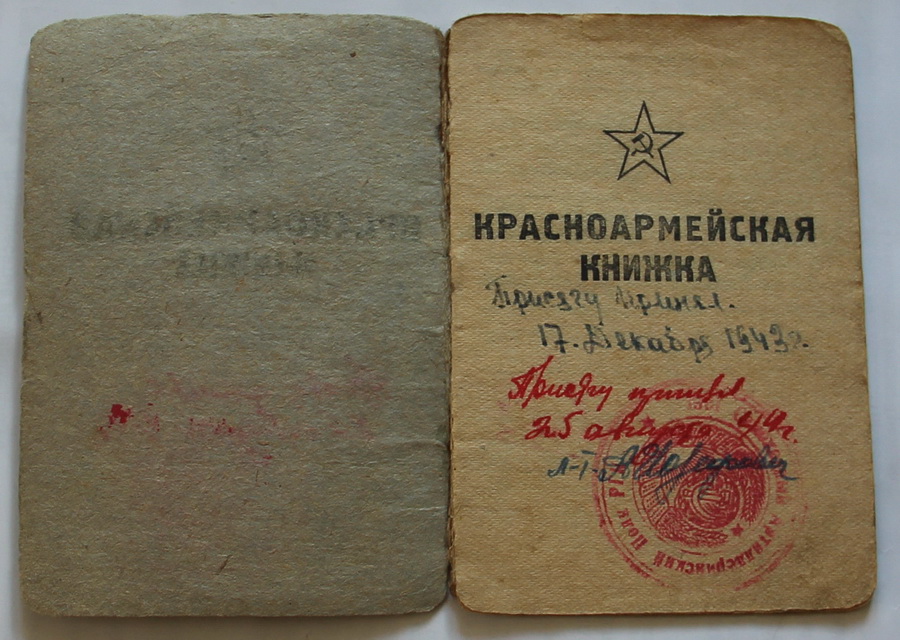 КРАСНОАРМЕЙСКАЯ
КНИЖКА
Присягу принял.
17. Декабря 1943г.
Присягу принял
25 августа 44г.
л-т
Артиллерийский Полк